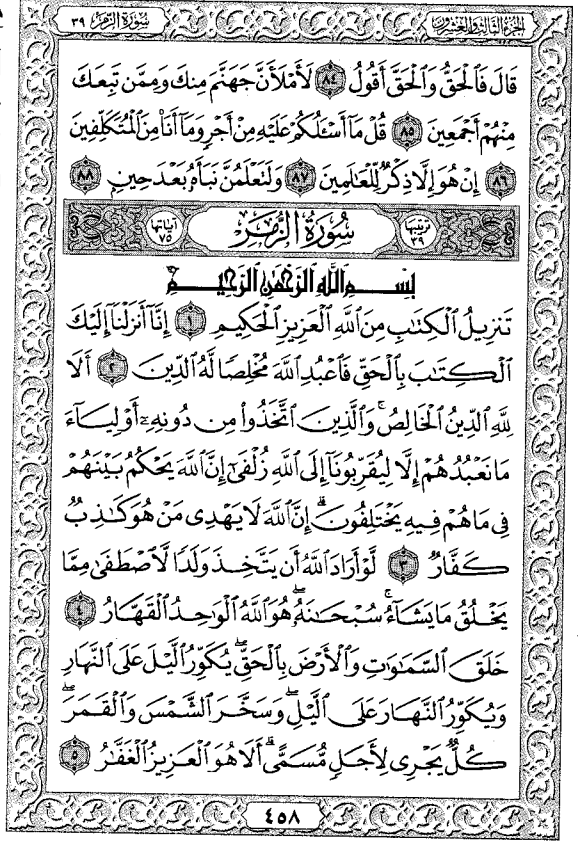 سُورَةُ الزُّمَرِ ٣٩ الجُزْءُ الثَّالِثُ وَالعِشْرُونَ
قَالَ فَالْحَقُّ وَالْحَقَّ أَقُولُ ٨٤ لَأَمْلَأَنَّ جَهَنَّمَ مِنكَ وَمِمَّن تَبِعَكَ
مِنْهُمْ أَجْمَعِينَ ٨٥ قُلْ مَآ أَسْـَٔلُكُمْ عَلَيْهِ مِنْ أَجْرٍ وَمَآ أَنَا۠ مِنَ ٱلْمُتَكَلِّفِينَ
٨٦ إِنْ هُوَ إِلَّا ذِكْرٌ لِّلْعَـٰلَمِينَ ٨٧ وَلَتَعْلَمُنَّ نَبَأَهُۥ بَعْدَ حِينٍۭ ٨٨
ترتيبها ٣٩ سُورَةُ الزُّمَرِ آياتها ٧٥
بِسْمِ ٱللَّهِ ٱلرَّحْمَـٰنِ ٱلرَّحِيمِ
تَنزِيلُ ٱلْكِتَـٰبِ مِنَ ٱللَّهِ ٱلْعَزِيزِ ٱلْحَكِيمِ ١ إِنَّآ أَنزَلْنَآ إِلَيْكَ
ٱلْكِتَـٰبَ بِٱلْحَقِّ فَٱعْبُدِ ٱللَّهَ مُخْلِصًا لَّهُ ٱلدِّينَ ٢ أَلَا
لِلَّهِ ٱلدِّينُ ٱلْخَالِصُ ۚ وَٱلَّذِينَ ٱتَّخَذُوا۟ مِن دُونِهِۦٓ أَوْلِيَآءَ
مَا نَعْبُدُهُمْ إِلَّا لِيُقَرِّبُونَآ إِلَى ٱللَّهِ زُلْفَىٰٓ إِنَّ ٱللَّهَ يَحْكُمُ بَيْنَهُمْ
فِى مَا هُمْ فِيهِ يَخْتَلِفُونَ ۗ إِنَّ ٱللَّهَ لَا يَهْدِى مَنْ هُوَ كَـٰذِبٌ
كَفَّارٌ ٣ لَّوْ أَرَادَ ٱللَّهُ أَن يَتَّخِذَ وَلَدًا لَّٱصْطَفَىٰ مِمَّا
يَخْلُقُ مَا يَشَآءُ ۚ سُبْحَـٰنَهُۥ ۖ هُوَ ٱللَّهُ ٱلْوَٰحِدُ ٱلْقَهَّارُ ٤
خَلَقَ ٱلسَّمَـٰوَٰتِ وَٱلْأَرْضَ بِٱلْحَقِّ ۖ يُكَوِّرُ ٱلَّيْلَ عَلَى ٱلنَّهَارِ
وَيُكَوِّرُ ٱلنَّهَارَ عَلَى ٱلَّيْلِ ۖ وَسَخَّرَ ٱلشَّمْسَ وَٱلْقَمَرَ ۖ
كُلٌّ يَجْرِى لِأَجَلٍ مُّسَمًّى ۗ أَلَا هُوَ ٱلْعَزِيزُ ٱلْغَفَّـٰرُ ٥
٤٥٨